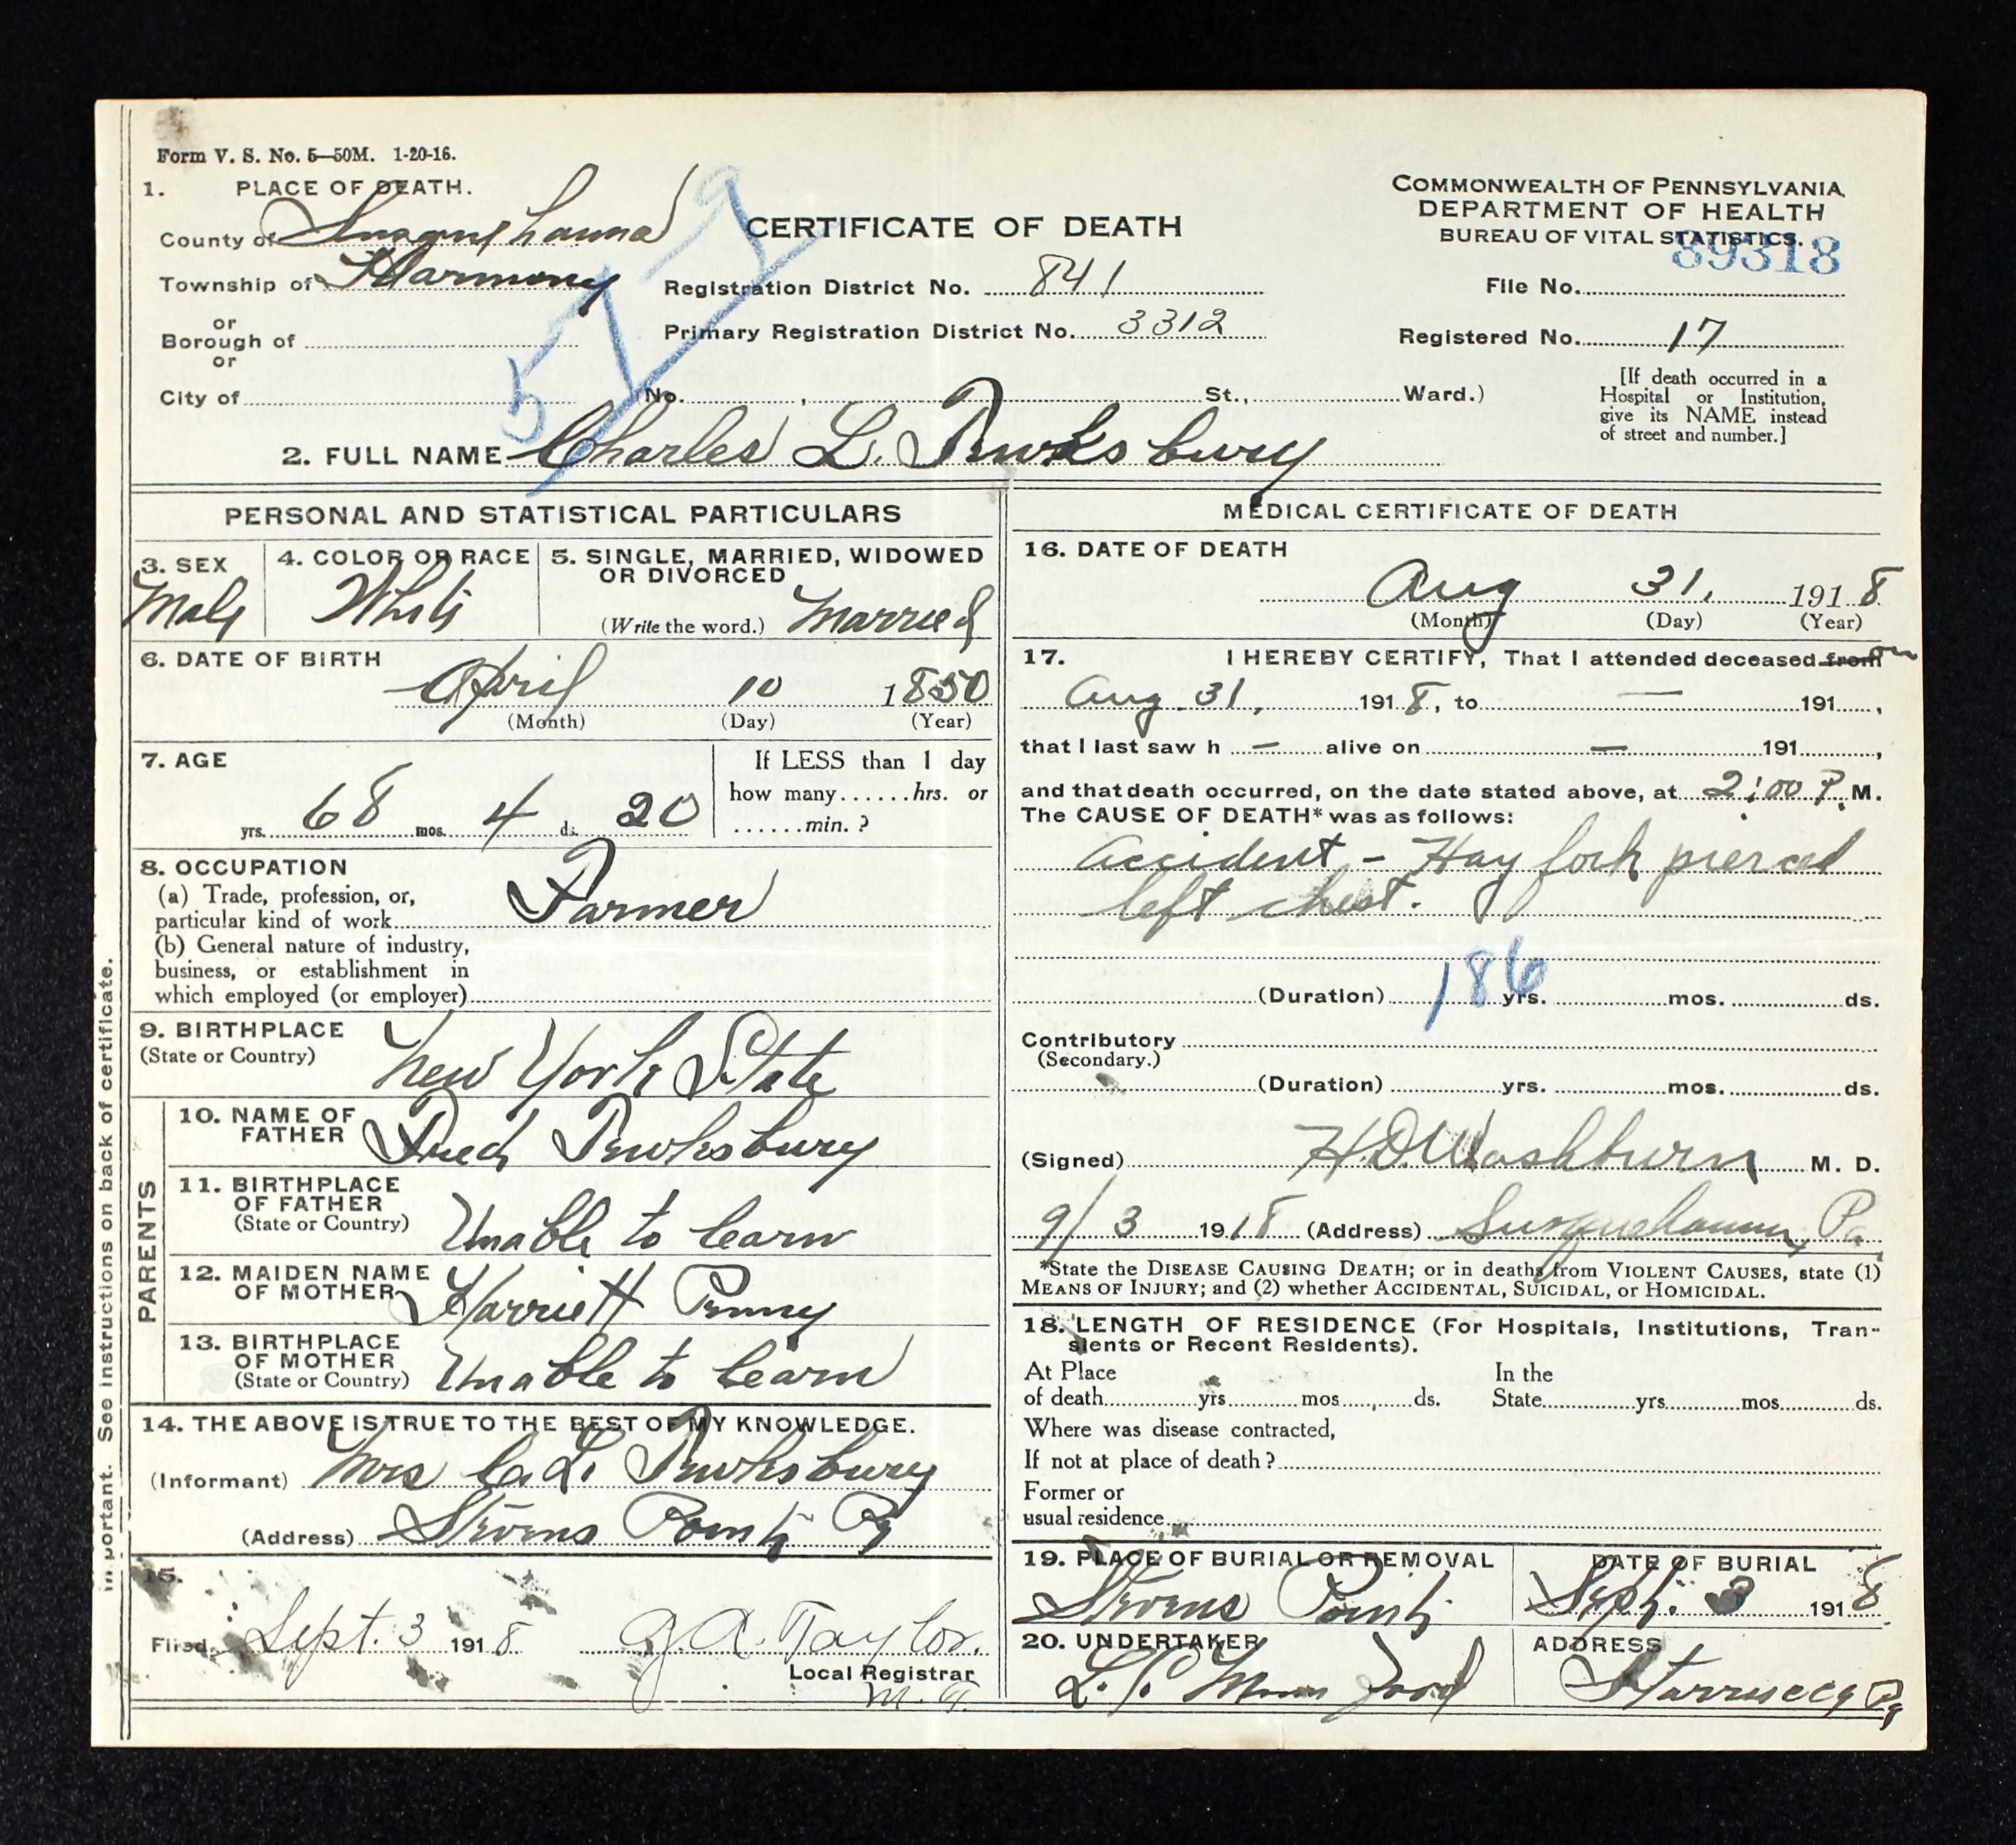 Form V. S. No. 5—50M. 1-20-16.
1. PLACE OF DEATH.
County of Susquehanna
Township of Harmony
or
Borough of
or
City of
579
CERTIFICATE OF DEATH
Registration District No. 841
Primary Registration District No. 3312
No. , St., Ward.)
COMMONWEALTH OF PENNSYLVANIA
DEPARTMENT OF HEALTH
BUREAU OF VITAL STATISTICS.
89318
File No.
Registered No. 17
[If death occurred in a
Hospital or Institution,
give its NAME instead
of street and number.]
2. FULL NAME Charles L. Tewksbury
PERSONAL AND STATISTICAL PARTICULARS
3. SEX
Male
4. COLOR OR RACE
White
5. SINGLE, MARRIED, WIDOWED
OR DIVORCED
(Write the word.) Married
6. DATE OF BIRTH
April 10 1850
(Month) (Day) (Year)
7. AGE
68 yrs. 4 mos. 20 ds.
If LESS than 1 day
how many......hrs. or
......min. ?
8. OCCUPATION
(a) Trade, profession, or,
particular kind of work Farmer
(b) General nature of industry,
business, or establishment in
which employed (or employer)
9. BIRTHPLACE
(State or Country) New York State
PARENTS
10. NAME OF
FATHER Fred Tewksbury
11. BIRTHPLACE
OF FATHER
(State or Country) Unable to learn
12. MAIDEN NAME
OF MOTHER Harriett Penny
13. BIRTHPLACE
OF MOTHER
(State or Country) Unable to learn
14. THE ABOVE IS TRUE TO THE BEST OF MY KNOWLEDGE.
(Informant) Mrs C. L. Tewksbury
(Address) Stevens Point Pa
15.
Filed Sept. 3 1918 Taylor.
Local Registrar
MEDICAL CERTIFICATE OF DEATH
16. DATE OF DEATH
Aug 31, 1918
(Month) (Day) (Year)
17. I HEREBY CERTIFY, That I attended deceased from on
Aug. 31, 1918, to — 191 ,
that I last saw h — alive on — 191 ,
and that death occurred, on the date stated above, at 2:00 P. M.
The CAUSE OF DEATH* was as follows:
Accident - Hay fork pierced
left chest.
186
(Duration) yrs. mos. ds.
Contributory
(Secondary.)
(Duration) yrs. mos. ds.
(Signed) H.D. Washburn M. D.
9/3 1918 (Address) Susquehanna, Pa.
*State the DISEASE CAUSING DEATH; or in deaths from VIOLENT CAUSES, state (1)
MEANS OF INJURY; and (2) whether ACCIDENTAL, SUICIDAL, or HOMICIDAL.
18. LENGTH OF RESIDENCE (For Hospitals, Institutions, Tran-
sients or Recent Residents).
At Place In the
of death yrs mos ds. State yrs mos ds.
Where was disease contracted,
If not at place of death ?
Former or
usual residence
19. PLACE OF BURIAL OR REMOVAL
Stevens Point
DATE OF BURIAL
Sept. 3 1918
20. UNDERTAKER
ADDRESS
Starrucca Pa
important. See instructions on back of certificate.